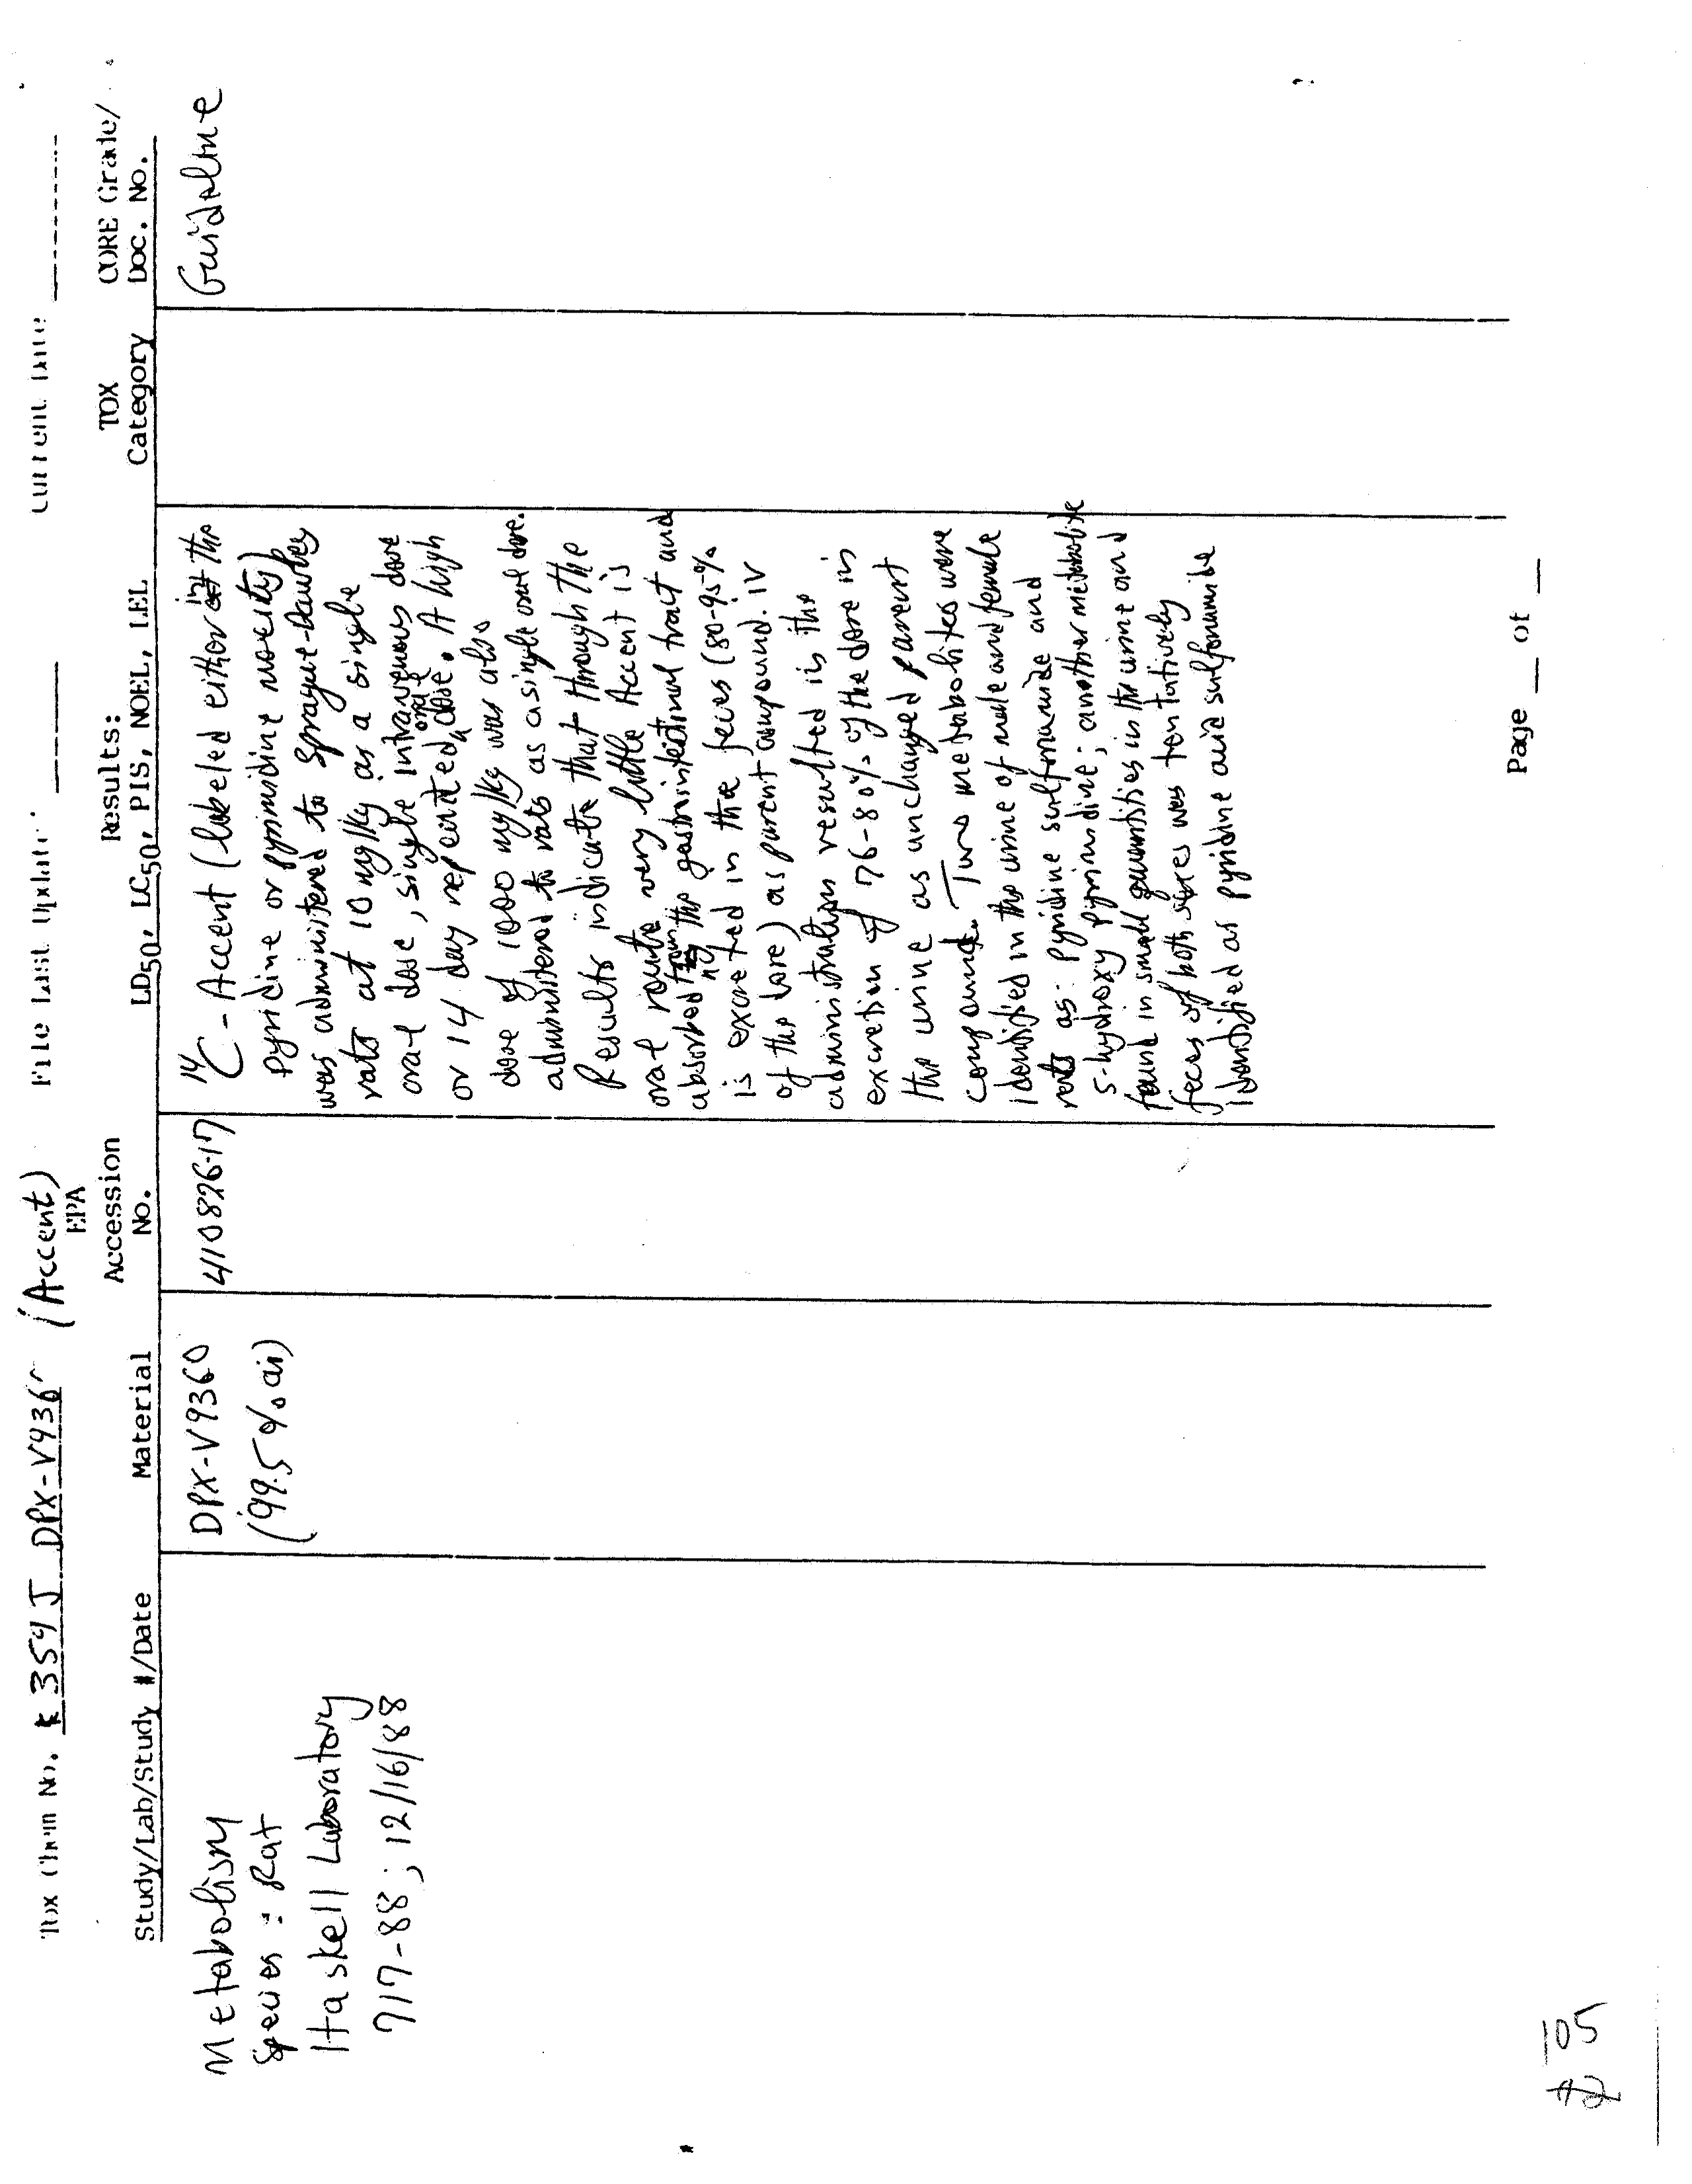 Tox Chem No. 359 J DPX-V936 (Accent) File Last Updated Current Date
EPA
Accession Results: TOX CORE Grade/
Study/Lab/Study #/Date Material No. LD50, LC50, PIS, NOEL, LEL Category Doc. No.
Metabolism
Species: Rat
Haskell Laboratory
717-88; 12/16/88
DPX-V9360
(99.5% ai)
410826-17
14C-Accent (labeled either in the
pyridine or pyrimidine moeity)
was administered to Sprague-Dawley
rats at 10 mg/kg as a single
oral dose, single intravenous dose
or 14 day repeated oral dose. A high
dose of 1000 mg/kg was also
administered to rats as a single oral dose.
Results indicate that through the
oral route very little Accent is
absorbed from the gastrointestinal tract and
is excreted in the feces (80-95%
of the dose) as parent compound. IV
administration resulted is the
excretion of 76-80% of the dose in
the urine as unchanged parent
compound. Two metabolites were
identified in the urine of male and female
rats as: pyridine sulfonamide and
5-hydroxy pyrimidine; another metabolite
found in small quantities in the urine and
feces of both sexes was tentatively
identified as pyridine acid sulfonamide
Guideline
Page __ of __
105